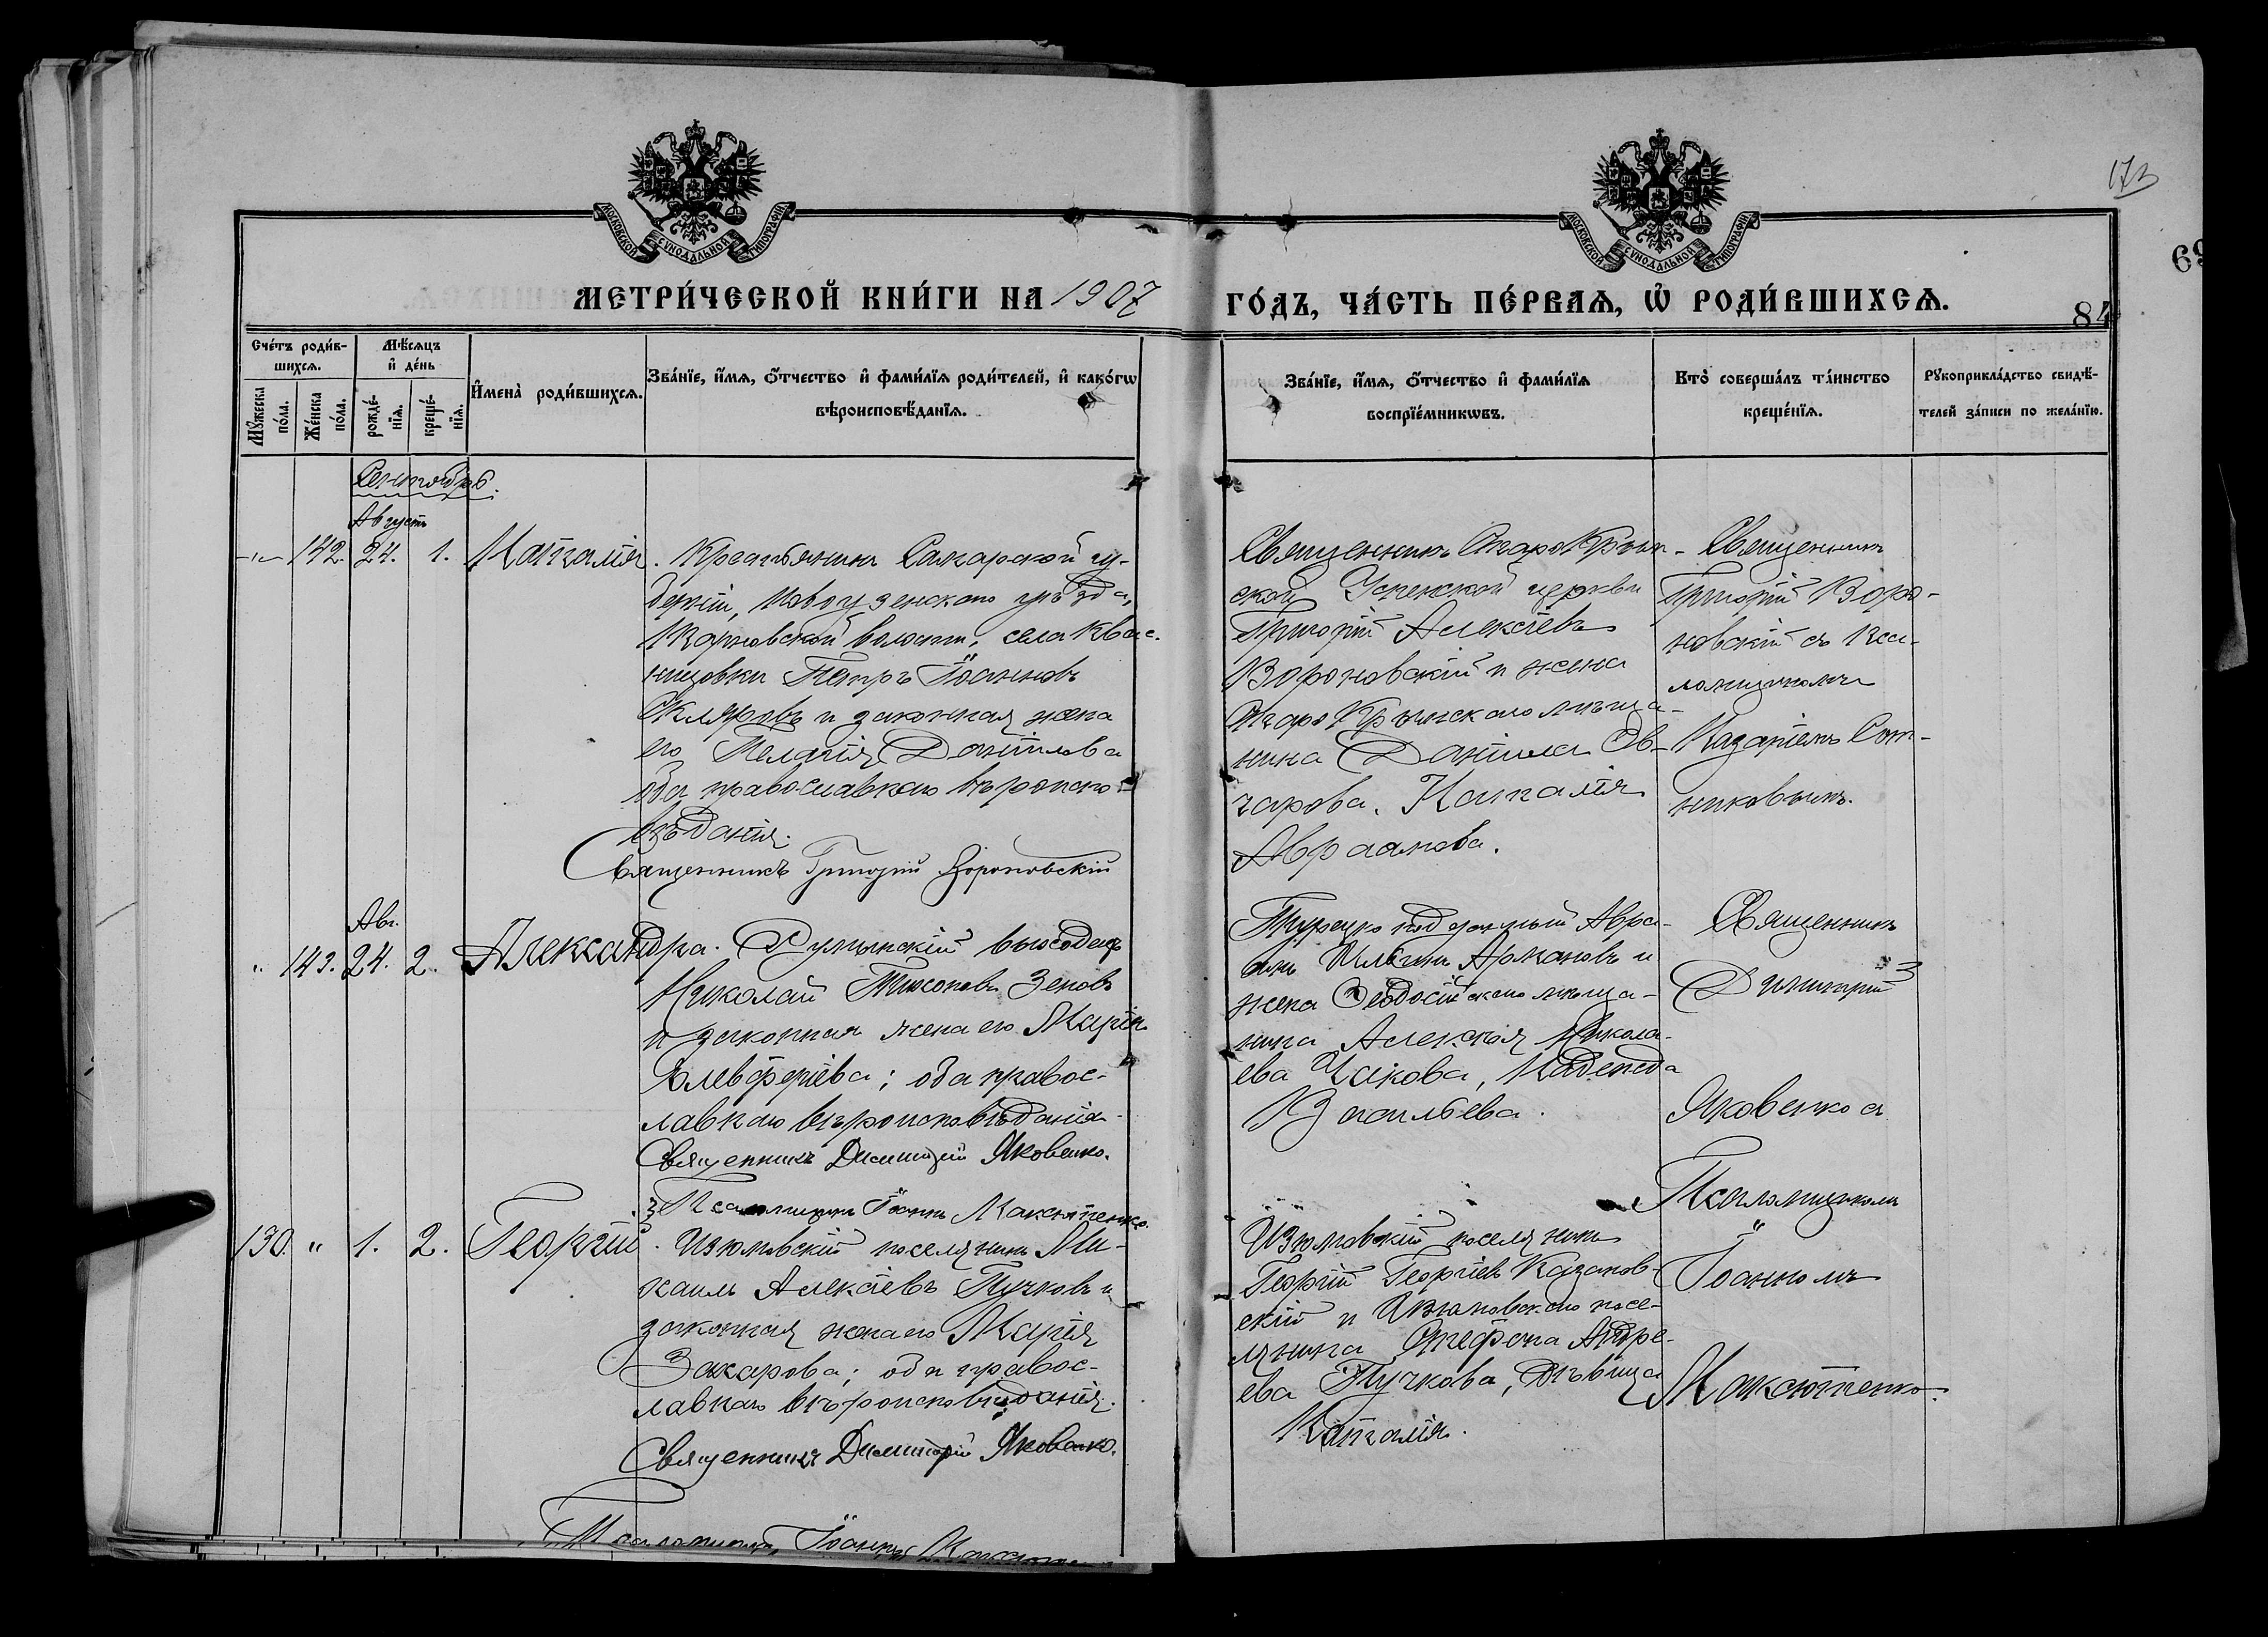 173
69
МОСКОВСКОЙ СѴНОДАЛЬНОЙ ТИПОГРАФІИ
МОСКОВСКОЙ СѴНОДАЛЬНОЙ ТИПОГРАФІИ
МЕТРИ́ЧЕСКОЙ КНИ́ГИ НА 1907
ГО́ДЪ, ЧА́СТЬ ПЕ́РВАѦ, Ѡ҆ РОДИ́ВШИХСѦ.
84
Сче́тъ роди́в-
шихсѧ.
Мꙋ́жеска
по́ла.
Же́нска
по́ла.
Мѣ́сѧцъ
и҆ де́нь
рожде́-
нїѧ.
креще́-
нїѧ.
И҆мена̀ роди́вшихсѧ.
Зва́нїе, и҆́мѧ, ѻ҆́тчество и҆ фами́лїѧ роди́телей, и҆ како́гѡ
вѣроисповѣ́данїѧ.
Зва́нїе, и҆́мѧ, ѻ҆́тчество и҆ фами́лїѧ
воспрїе́мникѡвъ.
Кто̀ соверша́лъ та́инство
креще́нїѧ.
Рꙋкоприкла́дство свидѣ́-
телей за́писи по жела́нїю.
Сентябрь.
Августъ
142. 24. 1. Наталія. Крестьянинъ Самарской гу-
берніи, Новоузенскаго уѣзда,
волости, села Квас-
никовки Петръ Іоанновъ
Скляровъ и законная жена
его Пелагія Даніилова
оба православнаго вѣроиспо-
вѣданія.
Священникъ Григорій Вороновскій
Священникъ СтароКрым-
ской Успенской церкви
Григорій Алексіевъ
Вороновскій и жена
СтароКрымскаго мѣща-
нина Даніила Ов-
чарова, Наталія
Авраамова.
Священникъ
Григорій Воро-
новскій съ Пса-
ломщикомъ
Назаріемъ Сот-
никовымъ.
Авг.
" 143. 24. 2. Александра. Румынскій выходецъ
Николай Тихоновъ Зеновъ
и законная жена его Марія
Елевферіева; оба правос-
лавнаго вѣроисповѣданія
Священникъ Димитрій Яковенко.
Псаломщикъ Іоаннъ Максютенко.
Турецко подданный Авра-
амъ Ильинъ Армановъ и
жена Ѳеодосійскаго мѣща-
нина Алексія Никола-
ева Чакова, Надежда
Васильева.
Священникъ
Димитрій
Яковенко а
Псаломщикомъ
Іоанномъ
Максютенко.
130. " 1. 2. Георгій. Изюмовскій поселянинъ Ми-
хаилъ Алексіевъ Пучковъ и
законная жена его Марія
Захарова; оба правос-
лавнаго вѣроисповѣданія.
Священникъ Димитрій Яковенко.
Псаломщикъ Іоаннъ Максютенко
Изюмовскій поселянинъ
Георгій Георгіевъ Казанов-
скій и Изюмовскаго посе-
лянина Стефана Андре-
ева Пучкова, дѣвица
Наталія.